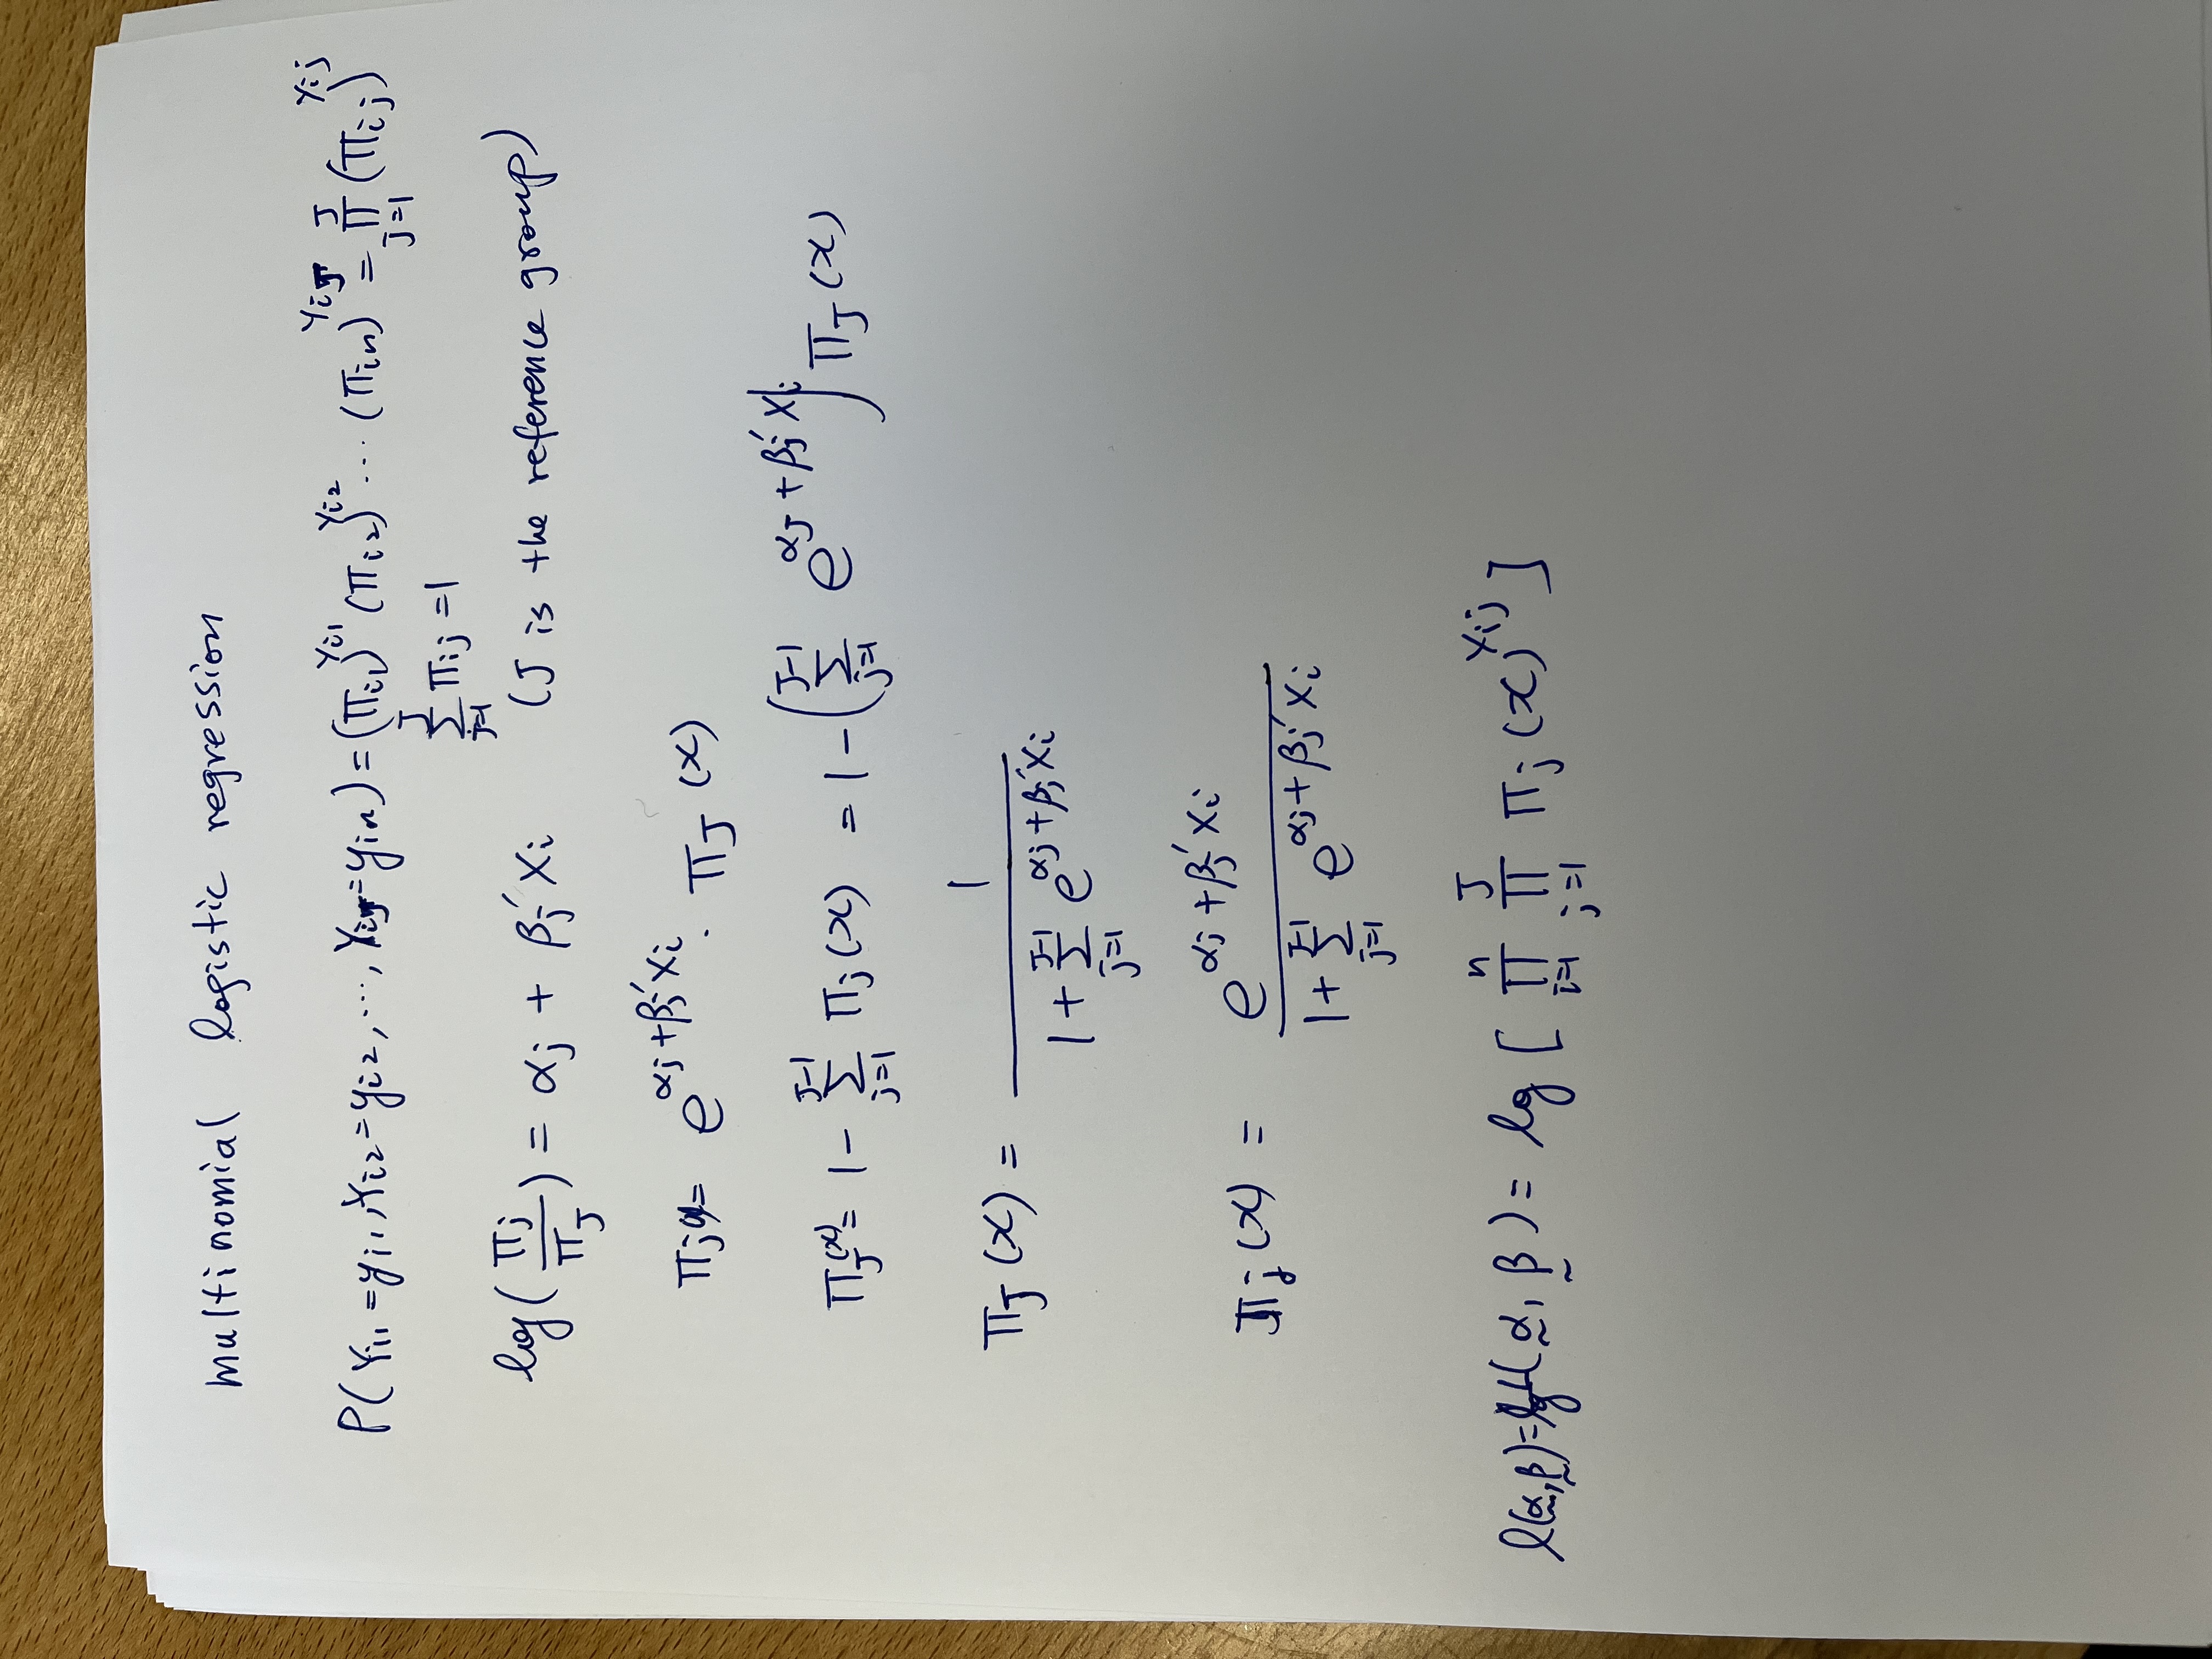 multinomial logistic regression
P(Yi1 = yi1, Yi2 = yi2, ⋯, YiJ = yin) = (πi1)^Yi1 (πi2)^Yi2 ⋯ (πin)^YiJ = ∏_{j=1}^{J} (πij)^Yij
∑_{j=1}^{J} πij = 1
log(πj/πJ) = αj + βj′Xi (J is the reference group)
πj(x) = e^{αj + βj′Xi} · πJ(x)
πJ(x) = 1 − ∑_{j=1}^{J−1} πj(x) = 1 − (∑_{j=1}^{J−1} e^{αJ + βj′Xi}) πJ(x)
πJ(x) = 1 / (1 + ∑_{j=1}^{J−1} e^{αj + βj′Xi})
πj(x) = e^{αj + βj′Xi} / (1 + ∑_{j=1}^{J−1} e^{αj + βj′Xi})
l(α̰, β̰) = log L(α̰, β̰) = log [ ∏_{i=1}^{n} ∏_{j=1}^{J} πj(x)^Yij ]